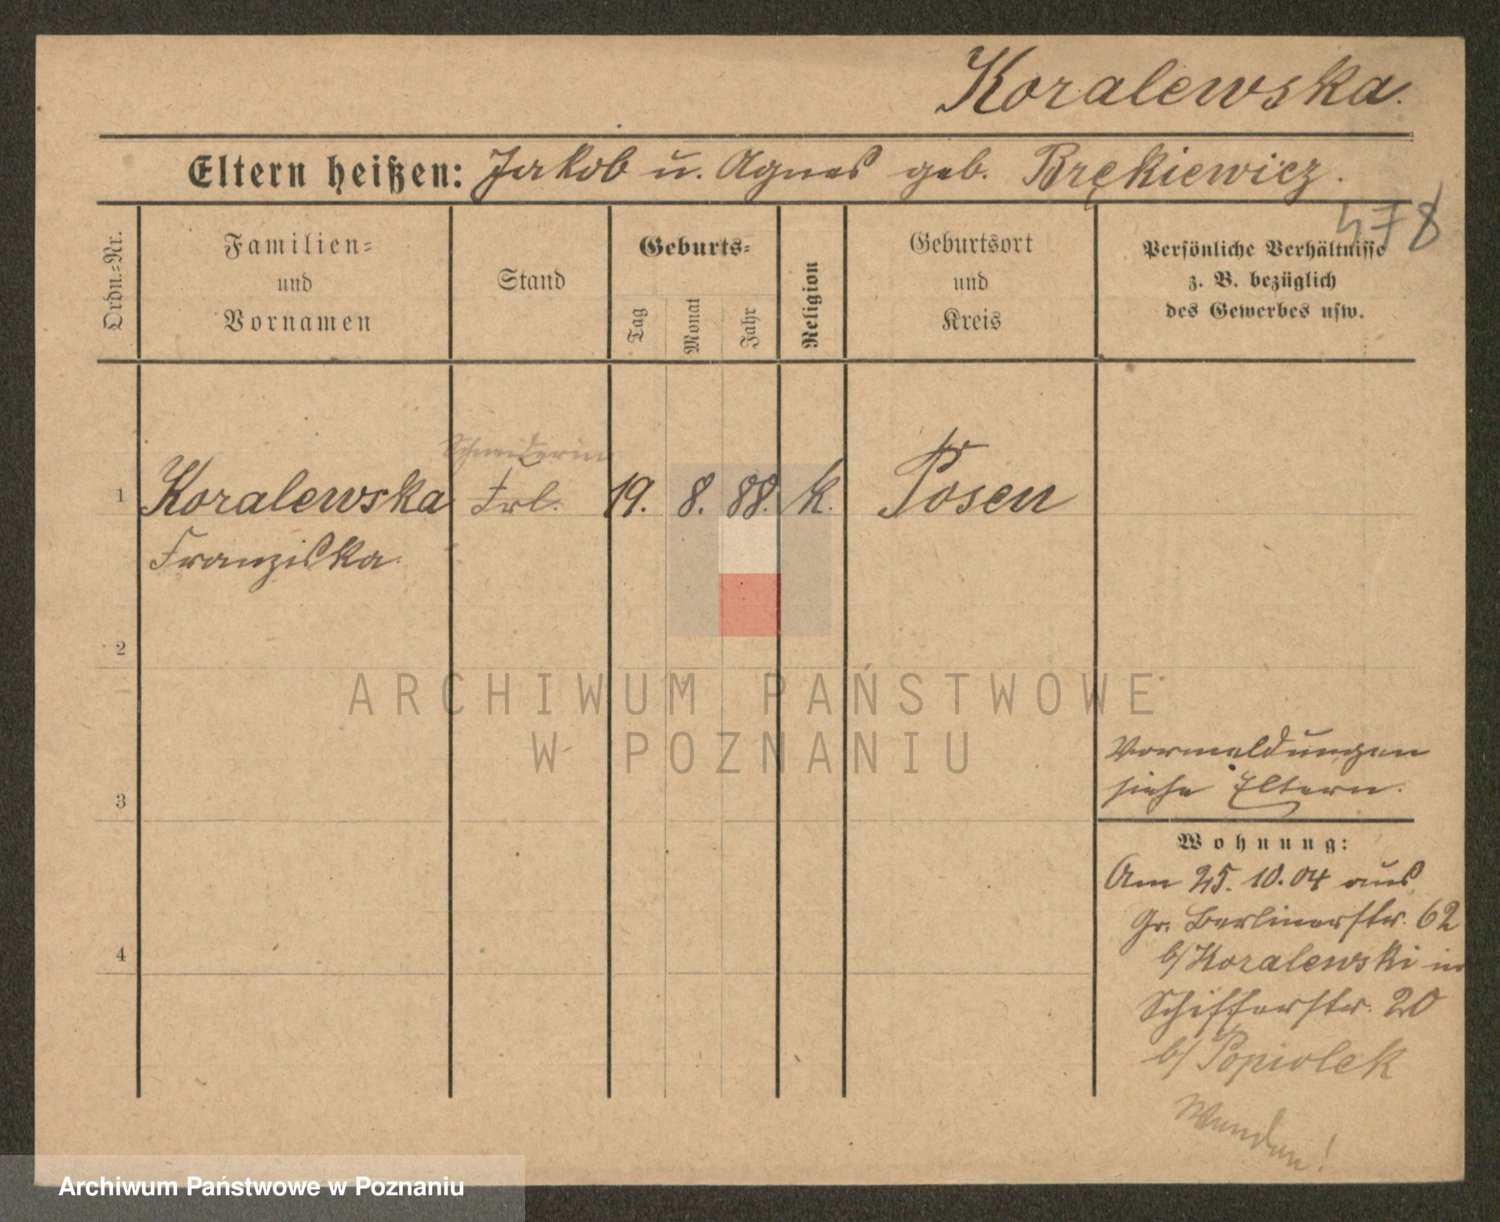 Koralewska.
Eltern heißen: Jakob u. Agnes geb. Brękiewicz.
478
Ordn.=Nr.
Familien=
und
Vornamen
Stand
Geburts=
Tag
Monat
Jahr
Religion
Geburtsort
und
Kreis
Persönliche Verhältnisse
z. B. bezüglich
des Gewerbes usw.
Schneiderin
1 Koralewska Frl. 19. 8. 88. k. Posen
Franziska
2
3
4
Vormeldungen
siehe Eltern.
Wohnung:
Am 25. 10. 04 aus
Gr. Berlinerstr. 62
b/ Koralewski in
Schifferstr. 20
b/ Popiolek
Wenden!
ARCHIWUM PAŃSTWOWE
W POZNANIU
Archiwum Państwowe w Poznaniu